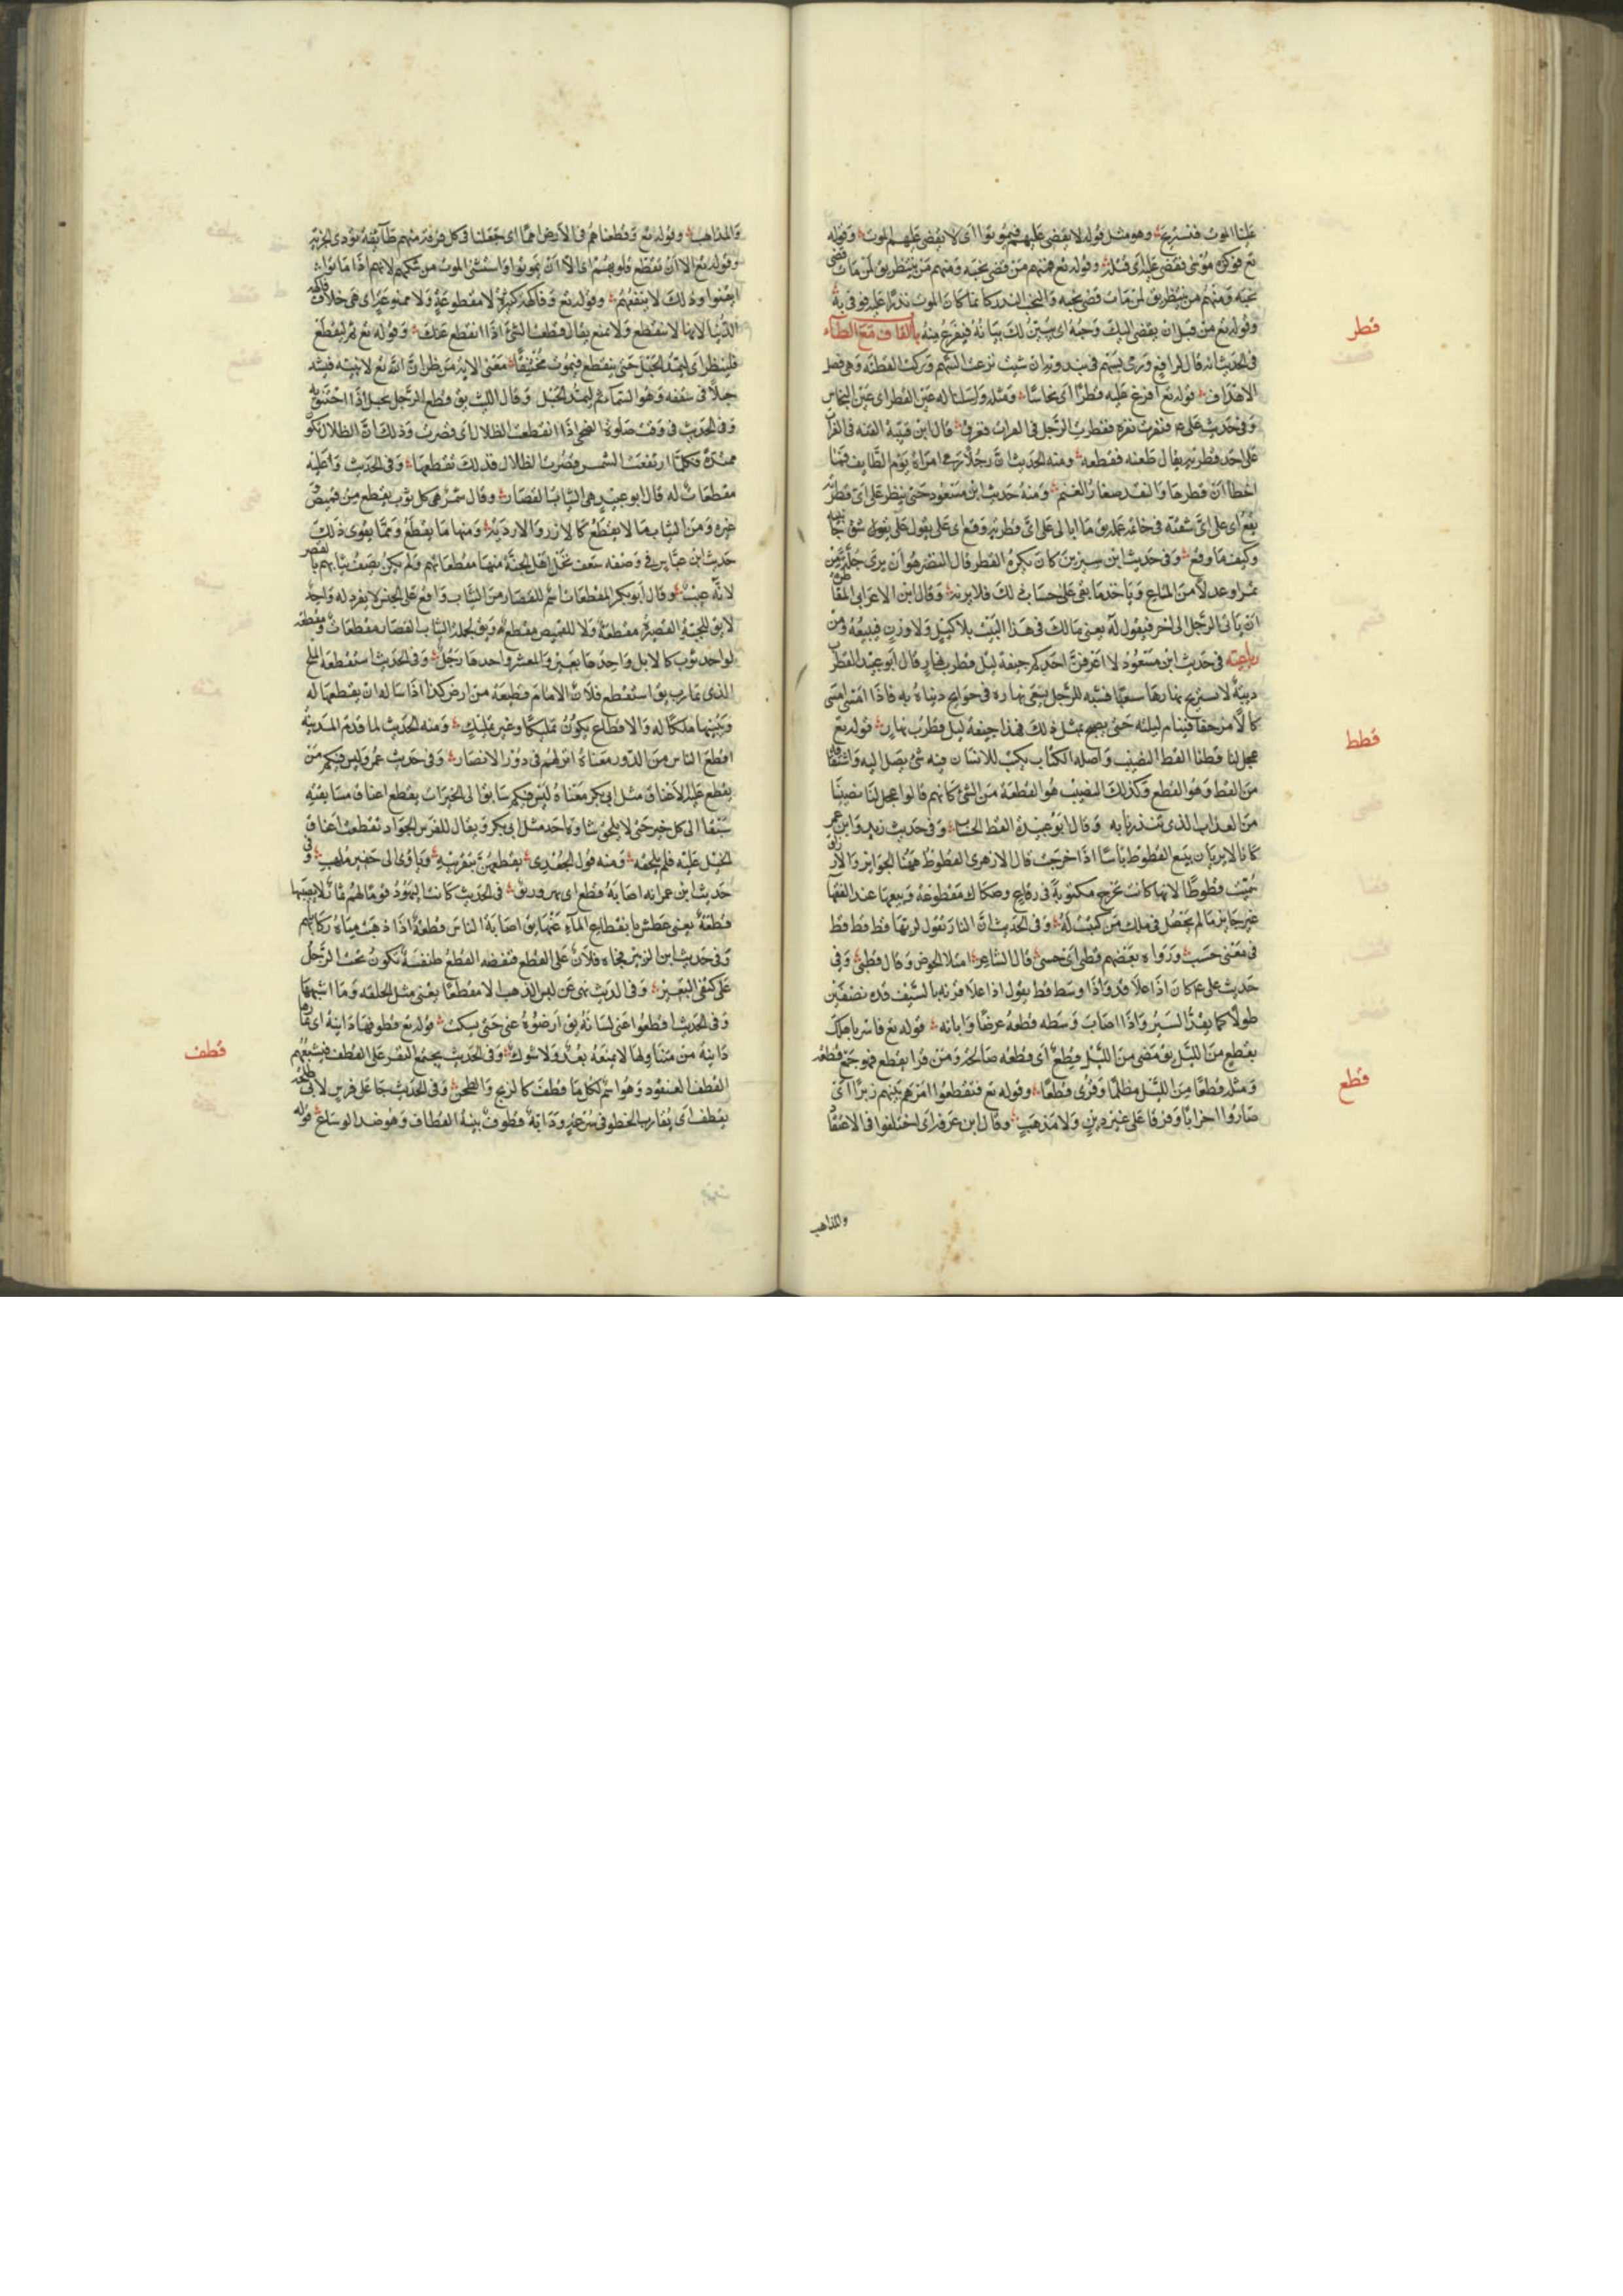 علينا الموت فنستريح وهو مثل قوله لا يقضى عليهم فيموتوا اى لا يقضى عليهم الموت وقوله
تع فوكزه موسى فقضى عليه اى قتله وقوله تع فمنهم من قضى نحبه ومنهم من ينتظر يق لمن مات قضى
نحبه ومنهم من ينتظر يق لمن مات قضى نحبه والنحب النذر كانما كان الموت نذرا عليه فوفى به
وقوله تع من قبل ان يقضى اليك وحيه اى يبين لك بيانه فيفرغ منه باب القاف مع الطاء
قطر
فى الحديث انه قال لرافع ورمى بسهم فى ثندوته ان شئت نزعت السهم وتركت القطبة وهى نصل
الاهداف قوله تع افرغ عليه قطرا اى نحاسا ومثله واسلنا له عين القطر اى عين النحاس
وفى حديث على ع فنفرت نقره فقطرت الرجل فى الفرات فغرق قال ابن قتيبة القته فى الفرات
على احد قطريه يقال طعنه فقطعه ومنه الحديث ان رجلا رمى امراة يوم الطايف فما
اخطا ان قطرها والنقد صغار الغنم ومنه حديث ابن مسعود حتى ينظر على اى قطريه
يقع اى على اى شقيه فى خاتمة عمله يق ما ابالى على اى قطريه وقع اى على
وكيف ما وقع وفى حديث ابن سيرين كان يكره القطر قال النضر هو ان يزن جلة من
تمر او عدلا من المتاع وياخذ ما بقى على حساب ذلك فلا يزنه وقال ابن الاعرابى المقاطرة
ان ياتى الرجل الى اخر فيقول له بعنى مالك فى هذا البيت بلا كيل ولا وزن فيبيعه ومن
رباعيته فى حديث ابن مسعود لا اعرفن احدكم جيفة ليل قطرب نهار قال ابو عبيد القطرب
دويبة لا تستريح نهارها سعيا فشبه الرجل يسعى نهاره فى حوايج دنياه به فاذا امسى امسى
كالا مزحفا فينام ليلته حتى يصبح بمثل ذلك فهذا جيفة ليل قطرب نهار قوله تع
قطط
عجل لنا قطنا القط النصيب واصله الكتاب يكتب للانسان فيه شئ يصل اليه واشتقاقه
من القط وهو القطع وكذلك النصيب هو القطعة من الشئ كانهم قالوا عجل لنا نصيبنا
من العذاب الذى تنذرنا به وقال ابو عبيدة القط الحساب وفى حديث زيد وابن عمر
كانا لا يريان ببيع القطوط باسا اذا خرجت قال الازهرى القطوط ههنا الجوايز والارزاق
سميت قطوطا لانها كانت تخرج مكتوبة فى رقاع وصكاك مقطوعة وبيعها عند الفقها
غير جايز ما لم يحصل فى ملك من كتبت له وفى الحديث ان النار تقول لربها قط قط قط
فى معنى حسب ورواه بعضهم قطى اى حسبى قال الشاعر امتلا الحوض وقال قطنى وفى
حديث على ع كان اذا علا قد واذا وسط قط يقول اذا علا قرنه بالسيف قده نصفين
طولا كما يقد السير واذا اصاب وسطه قطعه عرضا وابانه قوله تع فاسر باهلك
قطع
بقطع من الليل يق مضى من الليل قطع اى قطعة صالحة ومن قرا بقطع فهو جمع قطعة
ومثله قطعا من الليل مظلما وقرى قطعا وقوله تع فتقطعوا امرهم بينهم زبرا اى
صاروا احزابا وفرقا على غير دين ولا مذهب وقال ابن عرفة اى اختلفوا فى الاعتقاد
والمذاهب
والمذاهب وقوله تع وقطعناهم فى الارض امما اى جعلنا فى كل قرية منهم طايفة تودى الجزية
وقوله تع الا ان تقطع قلوبهم اى الا ان يموتوا واستثنى الموت من شكهم لانهم اذا ماتوا
ايقنوا وذلك لا ينفعهم وقوله تع وفاكهة كثيرة لا مقطوعة ولا ممنوعة اى هى خلاف فاكهة
الدنيا لانها لا تنقطع ولا تمنع يقال قطعت الشئ اذا انقطع عنك وقوله تع ثم ليقطع
فلينظر اى ليمد الحبل حتى ينقطع فيموت مختنقا معنى الاية من ظن ان الله تع لا ينصر نبيه فليشد
حبلا فى سقفه وهو السماء ثم ليمد الحبل وقال الليث يق قطع الرجل بحبل اذا اختنق به
وفى الحديث فى وقت صلوة الضحى اذا انقطعت الظلال اى قصرت وذلك ان الظلال تكون
ممتدة فكلما ارتفعت الشمس قصرت الظلال فذلك تقطعها وفى الحديث وعليه
مقطعات له قال ابو عبيد هى الثياب القصار وقال شمر هى كل ثوب يقطع من قميص
وغيره ومن الثياب ما لا يقطع كالازر والاردية ومنها ما يقطع ومما يقوى ذلك
حديث ابن عباس فى وصفه سعف نخل اهل الجنة منها مقطعاتهم ولم يكن يصف ثيابهم بالقصر
لانه عيب وقال ابو بكر المقطعات اسم للقصار من الثياب واقع على الجنس لا يفرد له واحد
لا يق للجبة القصيرة مقطعة ولا للقميص مقطع ويق لجملة الثياب القصار مقطعات ومقطعة
لواحد ثوب كالابل واحدها بعير والمعشر واحدها رجل وفى الحديث استقطعه الملح
الذى بمارب يق استقطع فلان الامام قطيعة من ارض كذا اذا ساله ان يقطعها له
ويبينها ملكا له والاقطاع يكون تمليكا وغير تمليك ومنه الحديث لما قدم المدينة
اقطع الناس من الدور معناه انزلهم فى دور الانصار وفى حديث عمر وليس فيكم من
يقطع عليه الاعناق مثل ابى بكر معناه ليس فيكم سابق الى الخيرات يقطع اعناق مسابقيه
سبقا الى كل خير حتى لا يلحق شاوه احد مثل ابى بكر ويقال للفرس الجواد تقطعت اعناق
الخيل عليه فلم يلحقه ومنه قول الجعدى يقطعهن بتقريبه وياوى الى حضر ملهب وفى
حديث ابن عمر انه اصابه قطع اى بهر وربو فى الحديث كانت اليهود قوما لهم ثمار لا يصيبها
قطعة يعنى عطش بانقطاع الماء عنها يق اصابة الناس قطعة اذا ذهبت مياه ركاياهم
وفى حديث ابن الزبير فجاه فلان على القطع فنفضه القطع طنفسة تكون تحت الرجل
على كتفى البعير وفى الحديث نهى عن لبس الذهب الا مقطعا يعنى مثل الحلقة وما اشبهها
وفى الحديث اقطعوا عنى لسانه يق ارضوه عنى حتى يسكت قوله تع قطوفها دانية اى ثمارها
قطف
دانية من متناولها لا يمنعه بعد ولا شوك وفى الحديث يجتمع النفر على القطف فيشبعهم
القطف العنقود وهو اسم لكل ما قطف كالذبح والطحن وفى الحديث جا على فرس لابى طلحة
يقطف اى يقارب الخطو فى سرعة ودابة قطوف بينة القطاف وهو ضد الوساع قوله